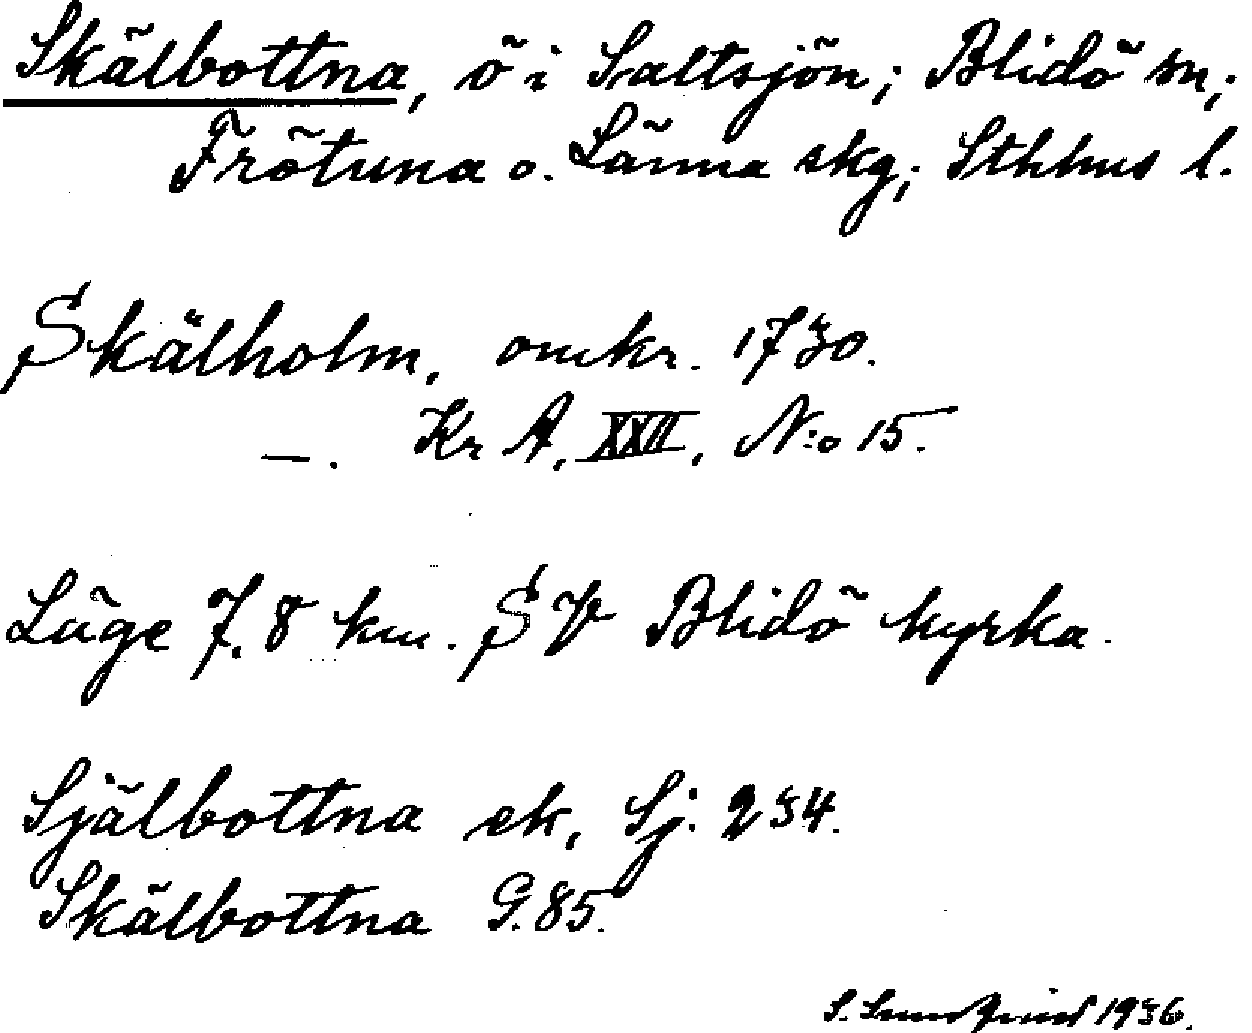 Skälbottna, ö i Saltsjön; Blidö sn,;
Frötuna o. Länna skg; Sthlms l.
Skälholm, omkr. 1730.
—. Kr A, XXII, N:o 15.
Läge 7,8 km. SV Blidö kyrka.
Själbottna ek, Sj: 234.
Skälbottna G. 85.
S. Sundqvist 1936.